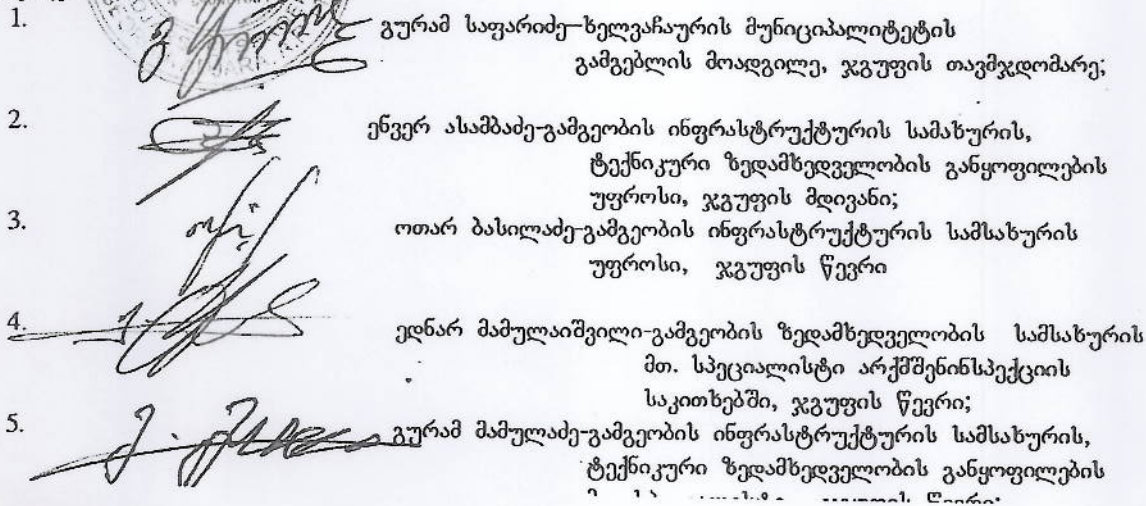 1. გურამ საფარიძე–ხელვაჩაურის მუნიციპალიტეტის
გამგებლის მოადგილე, ჯგუფის თავმჯდომარე;
2. ენვერ ასამბაძე-გამგეობის ინფრასტრუქტურის სამახურის,
ტექნიკური ზედამხედველობის განყოფილების
უფროსი, ჯგუფის მდივანი;
3. ოთარ ბასილაძე-გამგეობის ინფრასტრუქტურის სამსახურის
უფროსი, ჯგუფის წევრი
4. ედნარ მამულაიშვილი-გამგეობის ზედამხედველობის სამსახურის
მთ. სპეციალისტი არქმშენინსპექციის
საკითხებში, ჯგუფის წევრი;
5. გურამ მამულაძე-გამგეობის ინფრასტრუქტურის სამსახურის,
ტექნიკური ზედამხედველობის განყოფილების
წევრი;